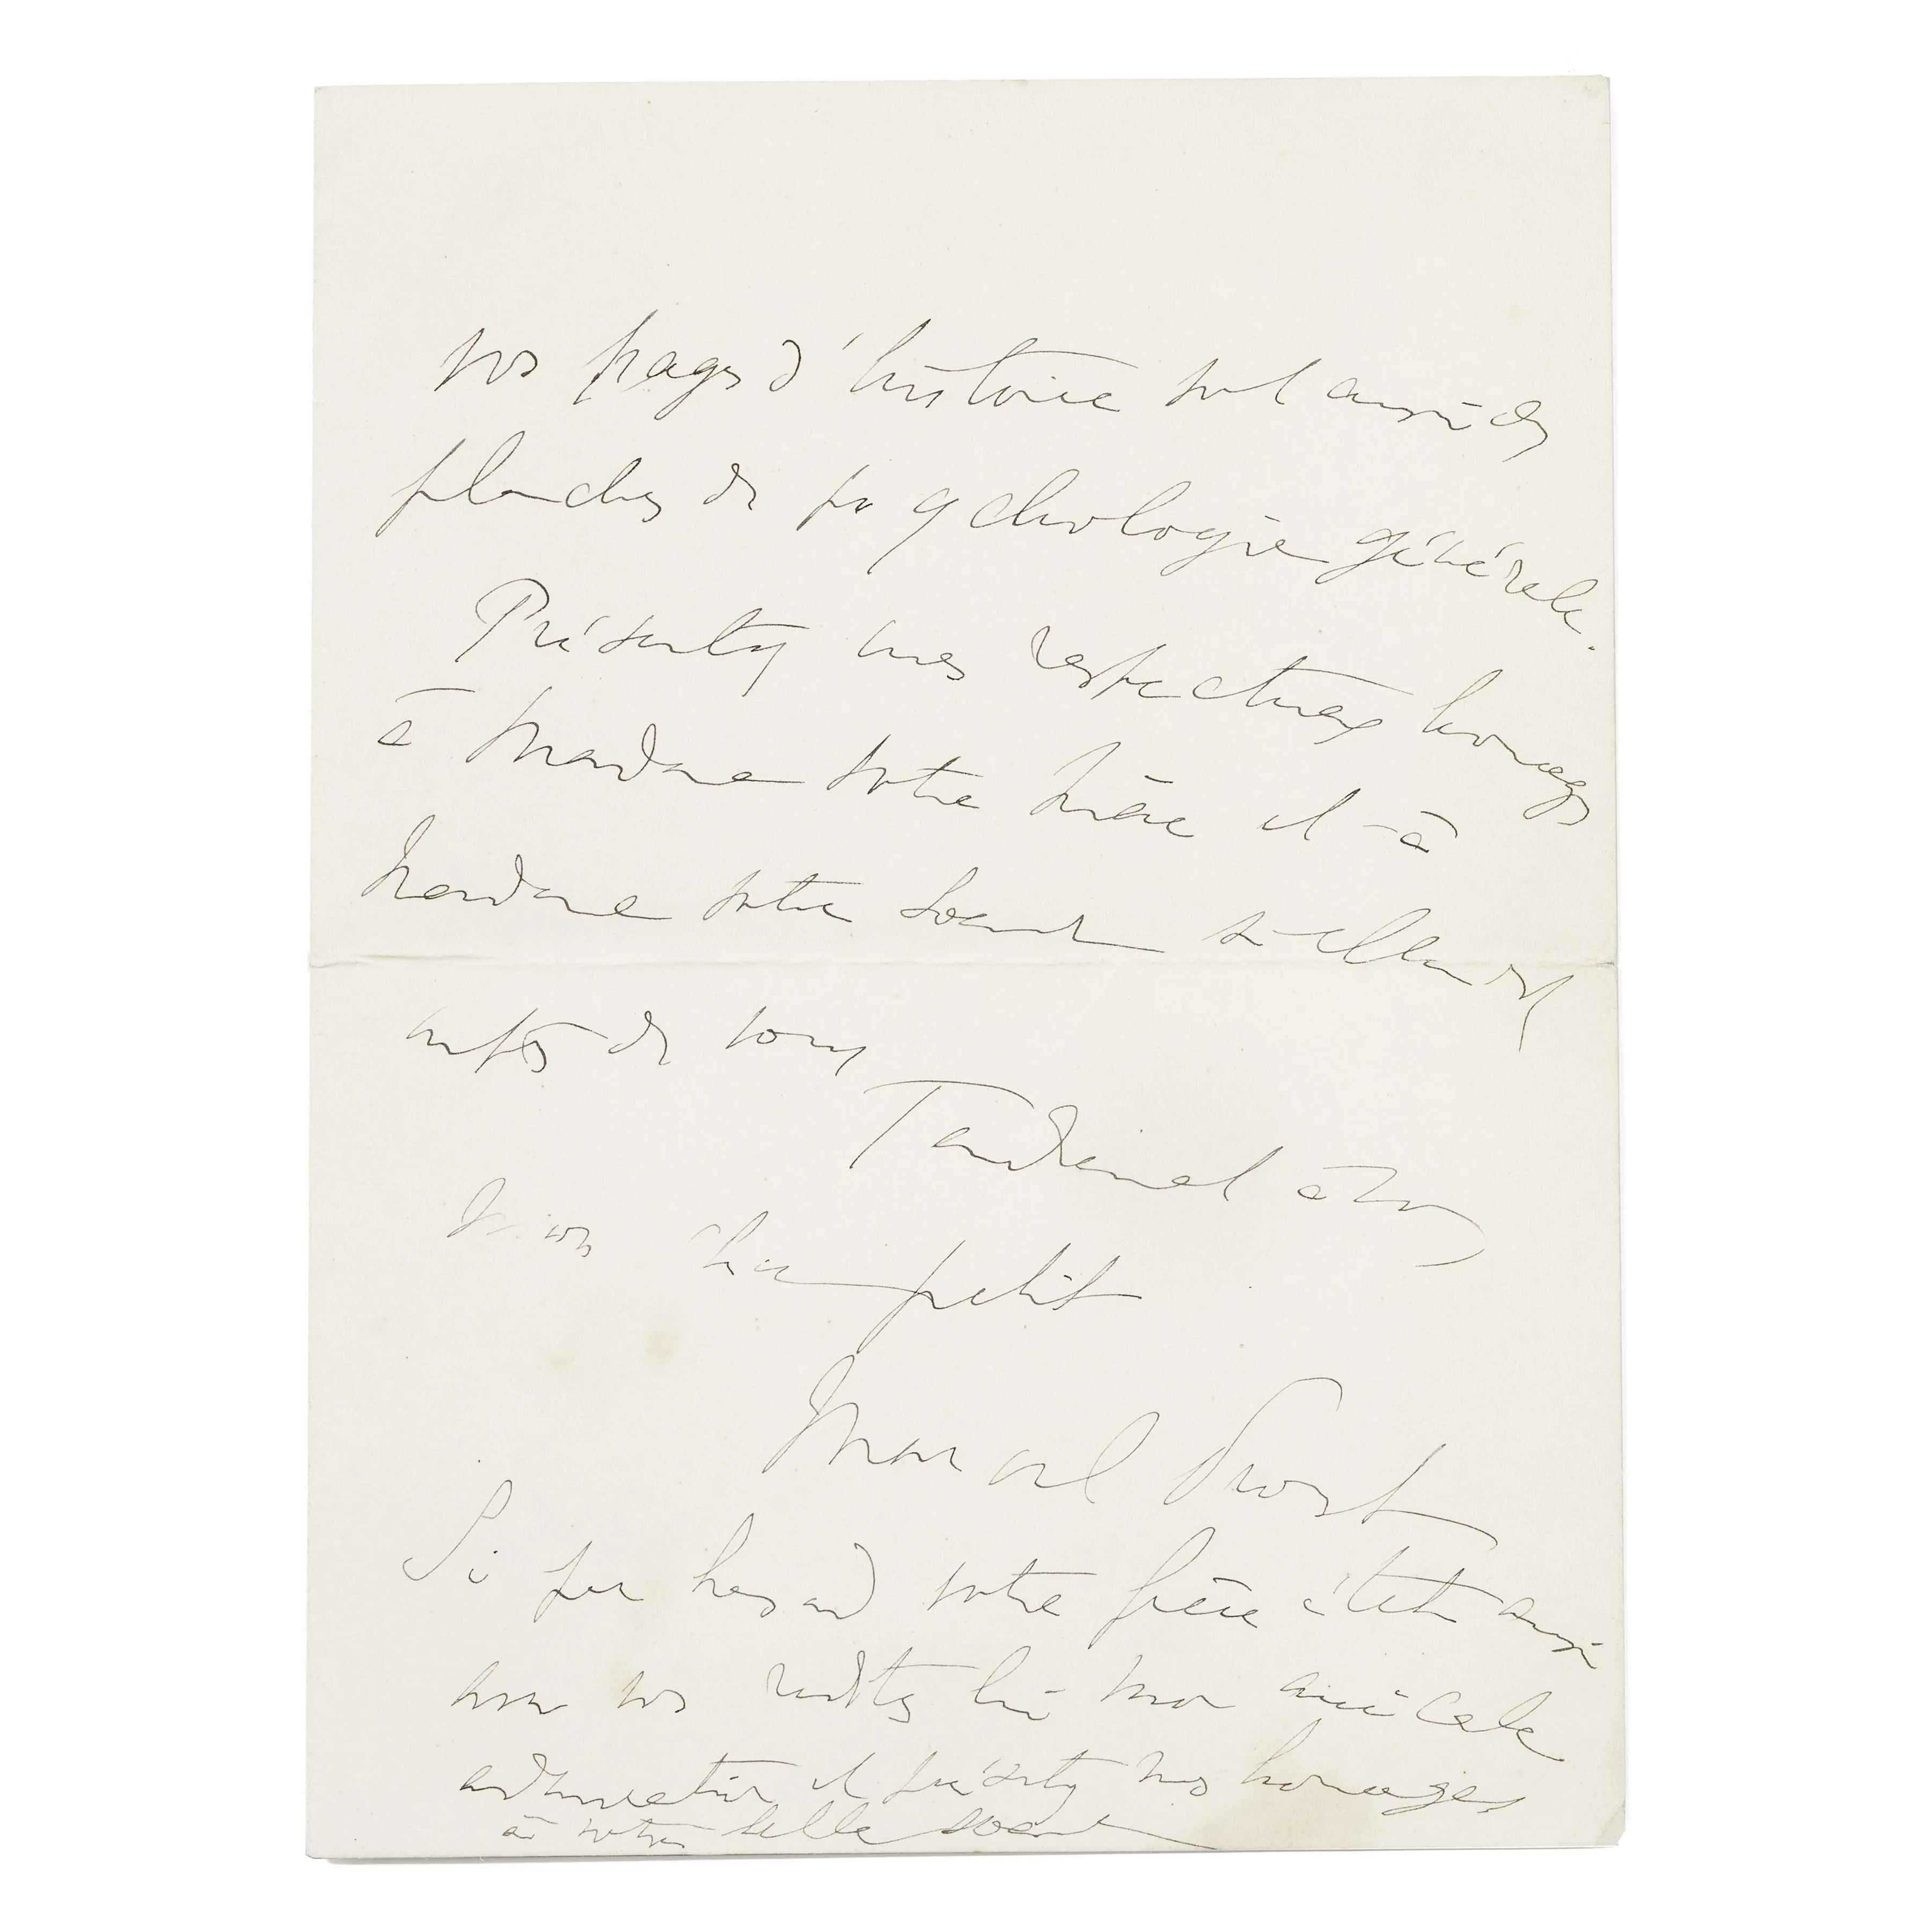 vos pages d'histoire sont aussi des
planches de psychologie générale.
Présentez mes respectueux hommages
à Madame votre mère et à
Madame votre soeur si elle est
auprès de vous
Tendrement à vous
mon cher petit
Marcel Proust
Si par hasard votre frère était aussi
avec vous redites lui mon amicale
admiration et présentez mes hommages
à votre belle soeur